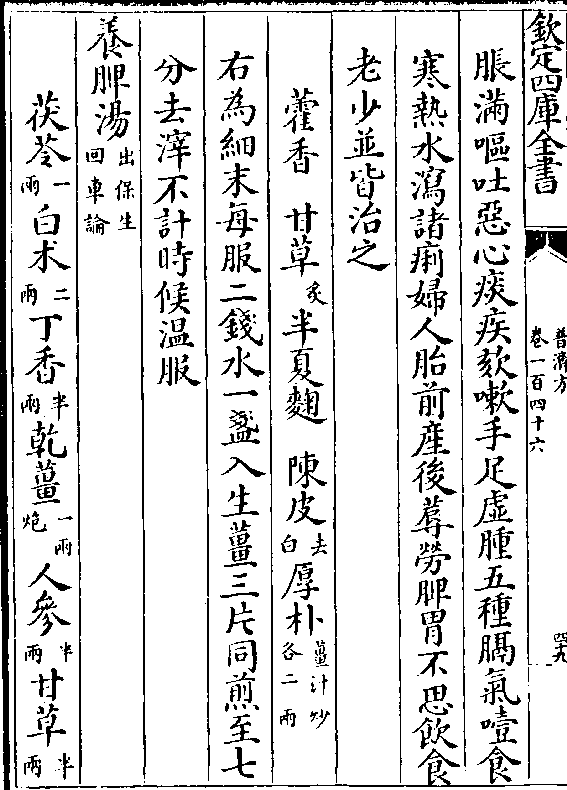 欽定四庫全書
普濟方
卷一百四十六
四十九
脹滿嘔吐惡心痰疾欬嗽手足虛腫五種膈氣噎食
寒熱水瀉諸痢婦人胎前産後蓐勞脾胃不思飲食
老少並皆治之
藿香 甘草炙半夏麴 陳皮去白厚朴薑汁炒各二兩
右為細末每服二錢水一盞入生薑三片同煎至七
分去滓不計時候温服
養脾湯出保生回車論
茯苓一兩白术二兩丁香半兩乾薑一兩炮人參半兩甘草半兩